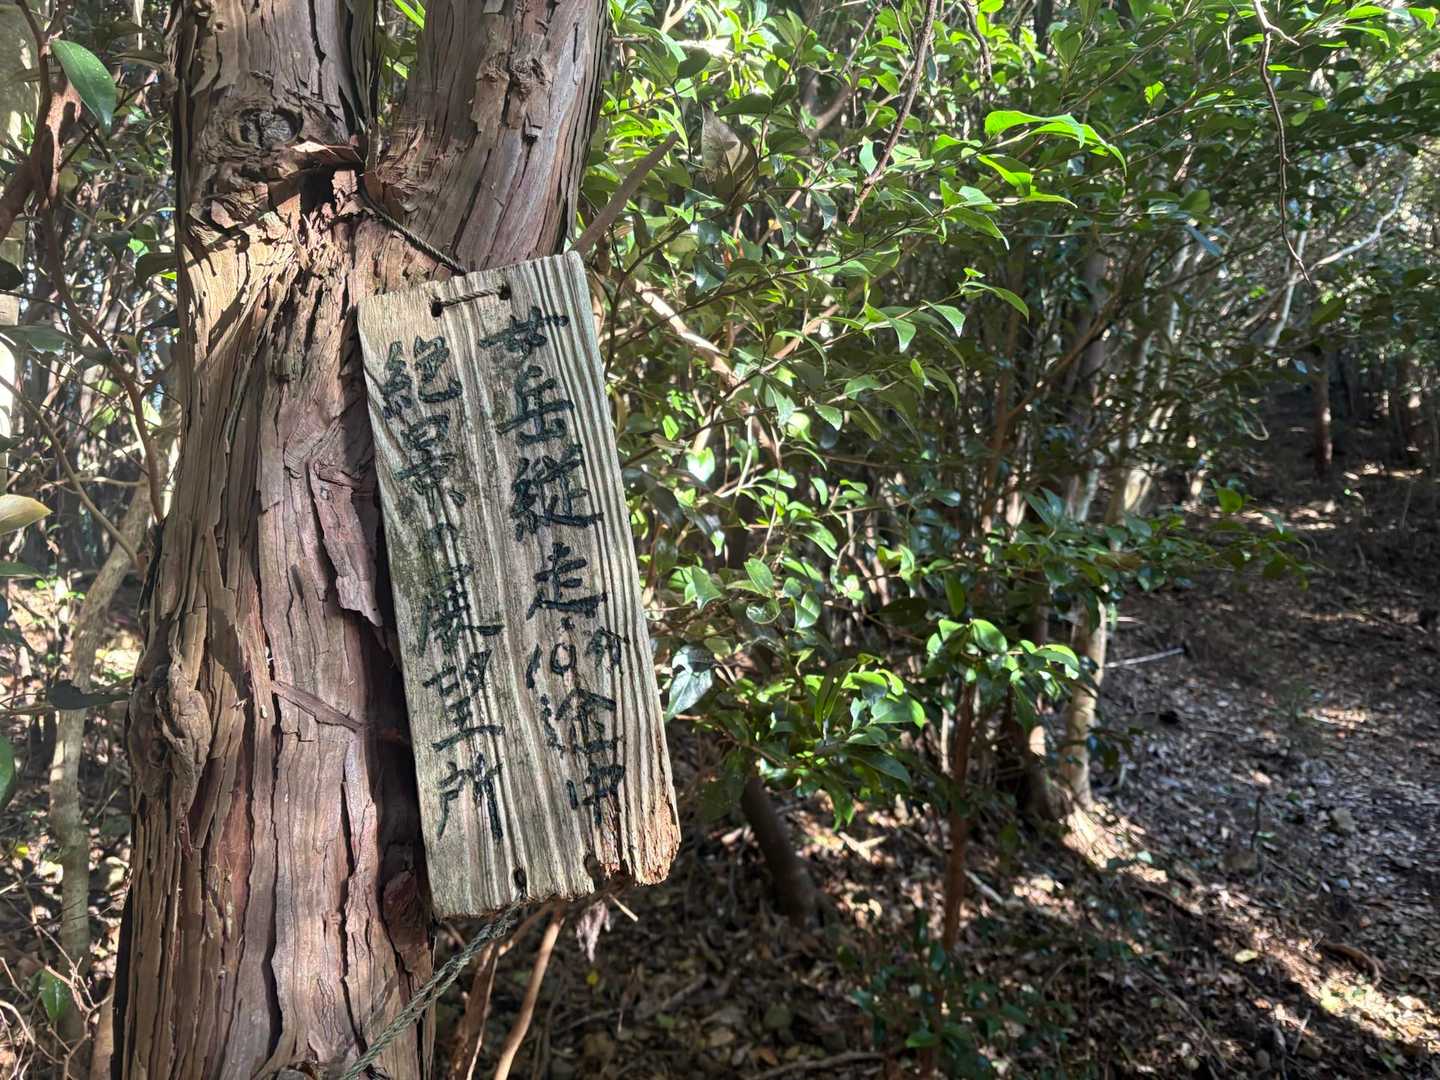 岳縦走10分途中
絶景の展望所